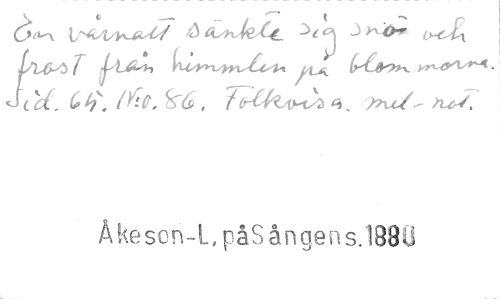 En vårnatt sänkte sig snö och
frost från himmlen på blommorna.
Sid. 64. No. 86. Folkvisa. mel-not.
Åkeson-L, påSångens.1880